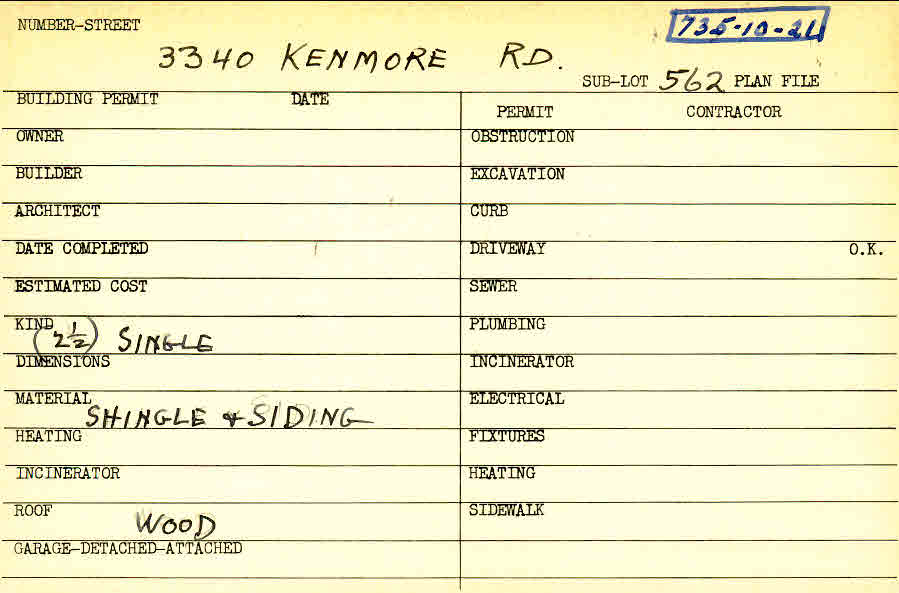 NUMBER-STREET
735-10-21
3340 KENMORE RD.
SUB-LOT 562 PLAN FILE
BUILDING PERMIT DATE
PERMIT CONTRACTOR
OWNER
OBSTRUCTION
BUILDER
EXCAVATION
ARCHITECT
CURB
DATE COMPLETED
DRIVEWAY O.K.
ESTIMATED COST
SEWER
KIND (2 1/2) SINGLE
PLUMBING
DIMENSIONS
INCINERATOR
MATERIAL SHINGLE & SIDING
ELECTRICAL
HEATING
FIXTURES
INCINERATOR
HEATING
ROOF WOOD
SIDEWALK
GARAGE-DETACHED-ATTACHED